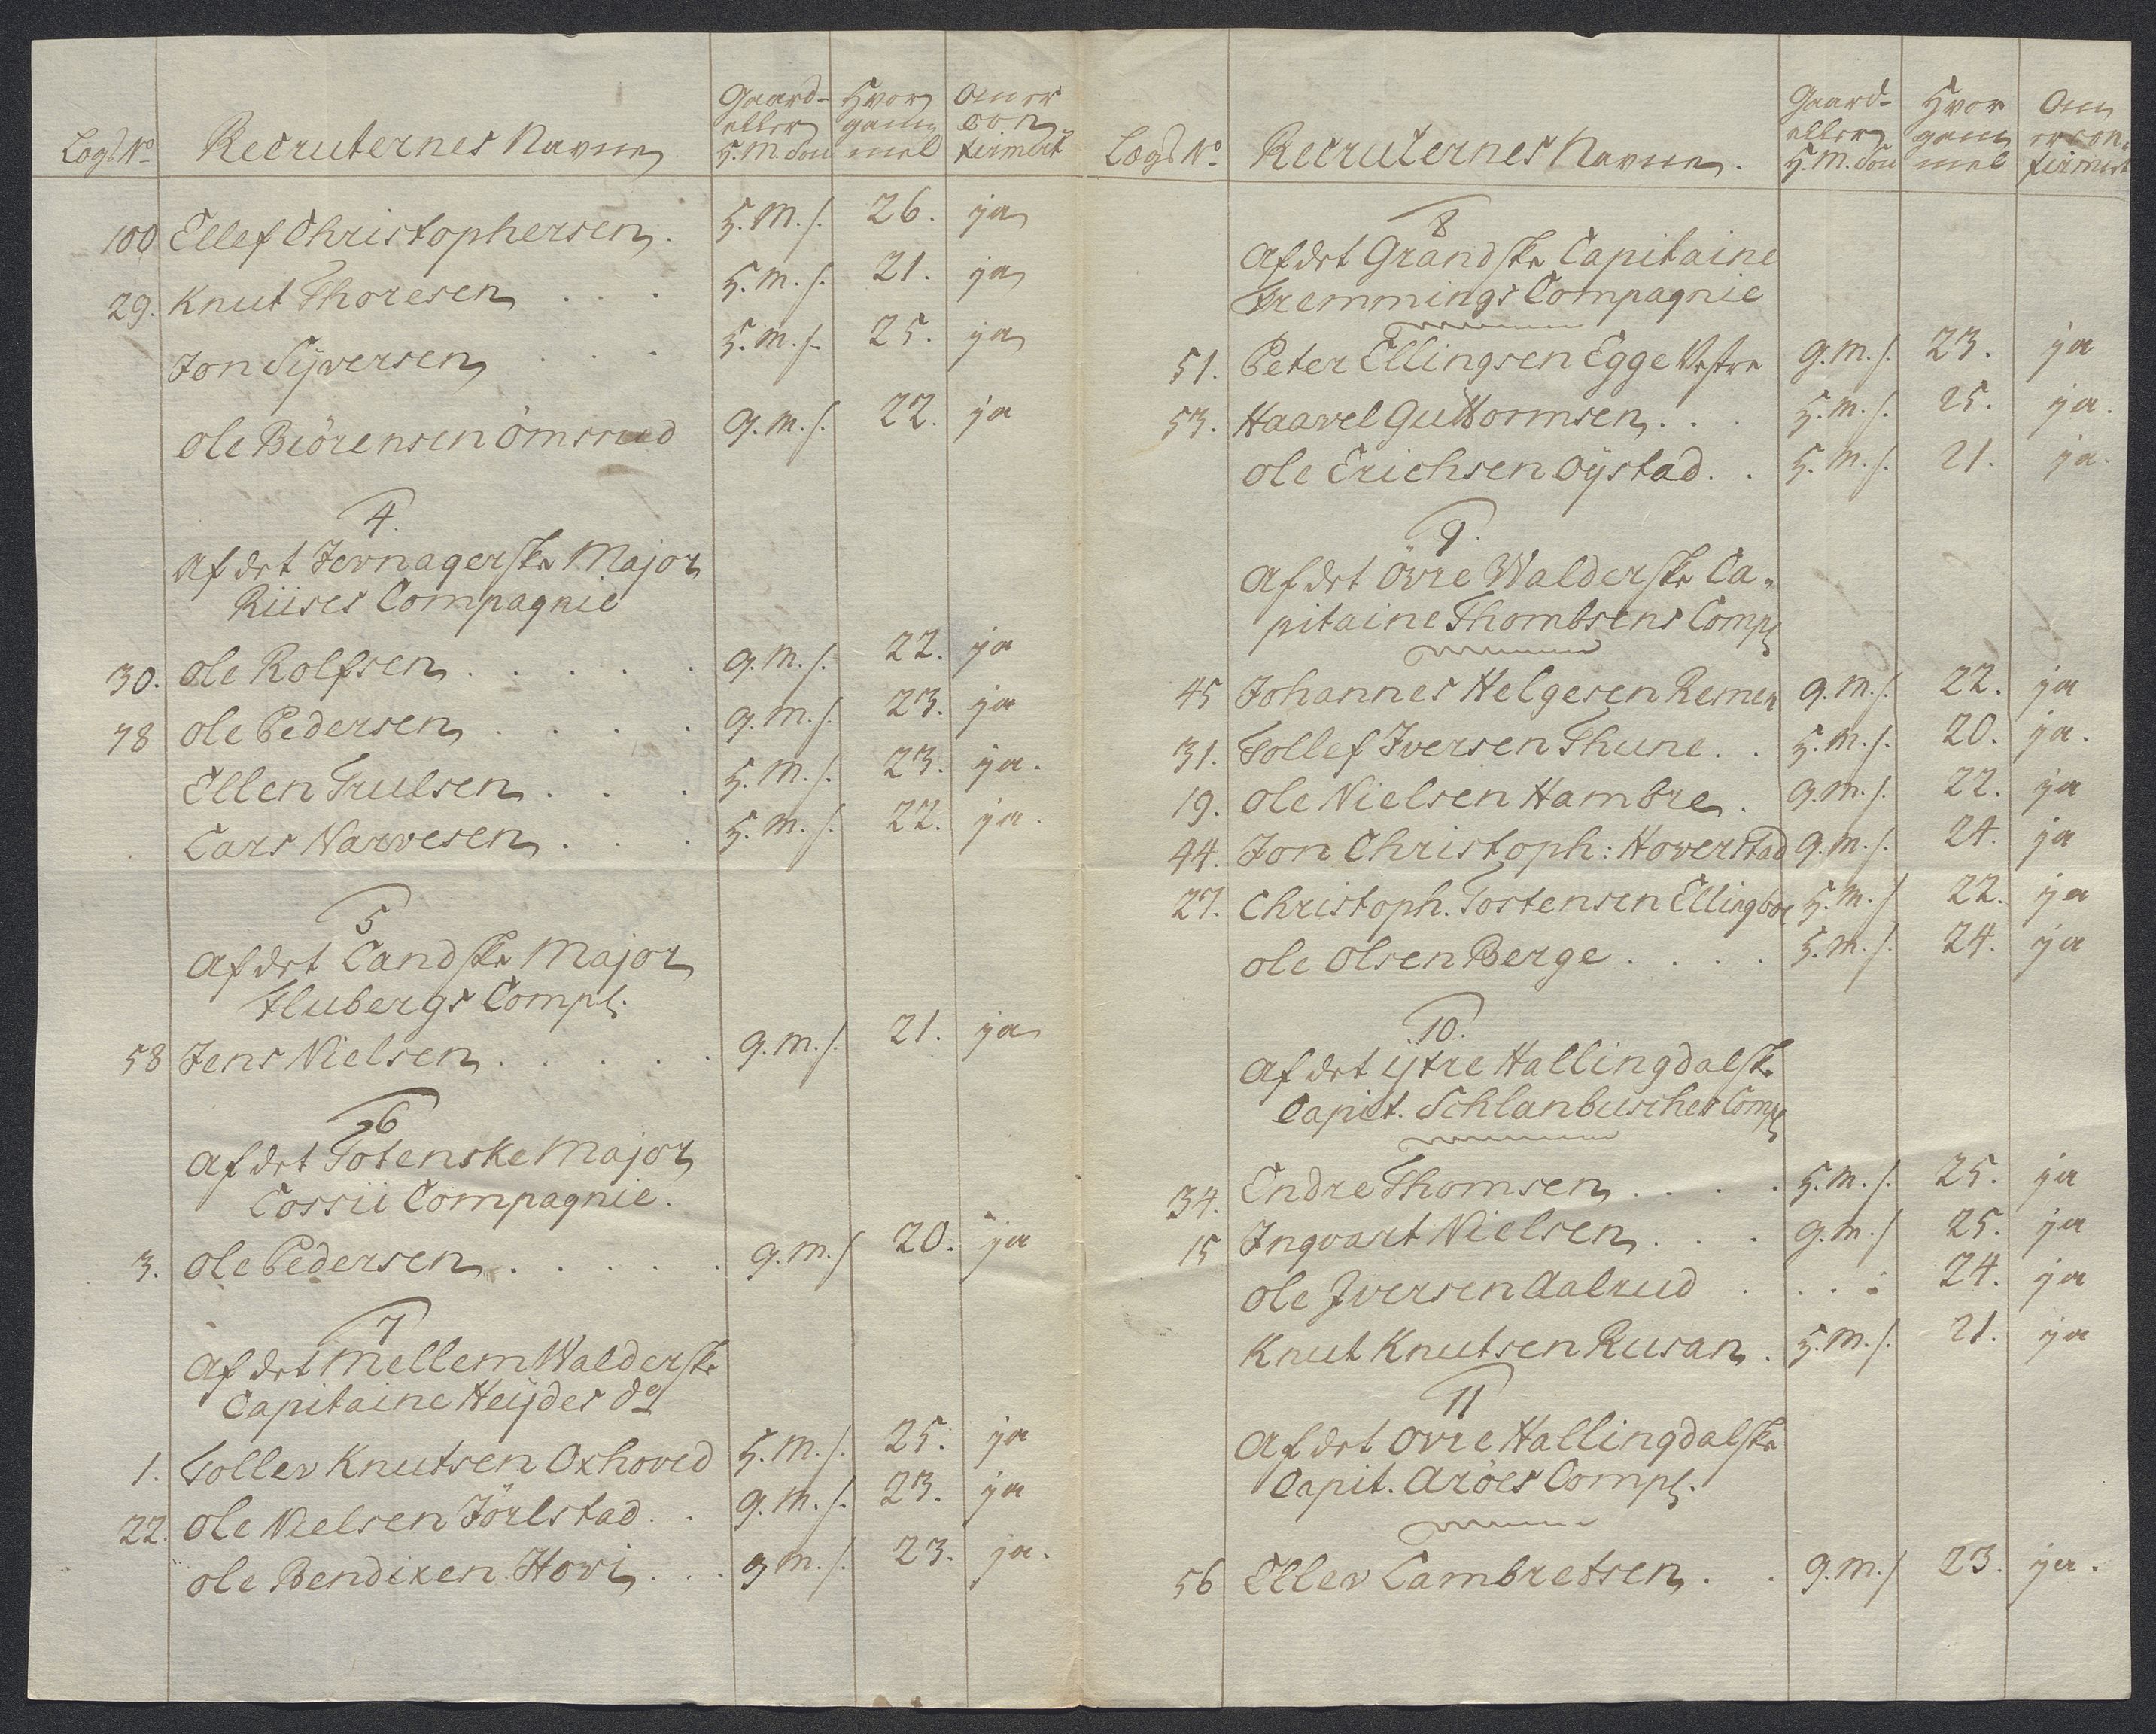 Lægd No. Recruternes Navne Gaard- eller H.M. Søn Hvor gam mel Om er con- firmert
100 Ellef Christophersen. H.M.S. 26. ja
29. Knut Thoresen . . . H.M.S. 21. ja
Jon Syversen . . . H.M.S. 25. ja
Ole Biörensen Ömsrud G.M.S. 22. ja
4.
Af det Jevnagerske Major
Riises Compagnie
30. Ole Rolfsen . . . . . G.M.S. 22. ja
78 Ole Pedersen . . . . G.M.S. 23. ja
Ellen Trulsen . . . H.M.S. 23. ja.
Lars Narvesen . . . H.M.S. 22. ja.
5
Af det Landske Major
Flubergs Comp.
58 Jens Nielsen . . . . . G.M.S. 21. ja
6
Af det Totenske Major
Cossii Compagnie.
3. Ole Pedersen . . . . . G.M.S 20. ja
7
Af det Mellem Walderske
Capitaine Heijdes do
1. Tollev Knutsen Oxhoved H.M.S. 25. ja
22. Ole Nielsen Jörlstad . . G.M.S. 23. ja
Ole Bendixen Hovi . . . G M.S. 23. ja.
Lægd No. Recruternes Navne. Gaard- eller H.M. Søn Hvor gam mel Om er con- firmert
8
Af det Grandske Capitaine
Fremmings Compagnie
51. Peter Ellingsen Egge Vestre G.M.S. 23. ja
53. Haavel Guttormsen . . . H.M.S. 25. ja.
Ole Erichsen Oÿstad . . H.M.S. 21. ja.
9.
Af det Övre Walderske Ca-
pitaine Thombsens Comp
45 Johannes Helgesen Remen G.M.S. 22. ja
31. Tollef Iversen Thune . . H.M.S. 20. ja.
19. Ole Nielsen Hambre . G.M.S. 22. ja
44. Jon Christoph: Hoverstad G.M.S. 24. ja
27. Christoph. Tostensen Ellingboe H.M.S 22. ja
Ole Olsen Berge . . . . H.M.S. 24. ja
10.
Af det ÿtre Hallingdalske
Capit. Schlanbusches Comp
34. Endre Thomsen . . . . H.M.S. 25. ja
15 Ingvart Nielsen . . . G.M.S 25. ja
Ole Iversen Aalrud . . . . 24. ja
Knut Knutsen Rusan . H.M.S. 21. ja
11
Af det Övre Hallingdalske
Capit. Aröes Comp.
56 Ellev Lambretsen . . G.M.S 23. ja.